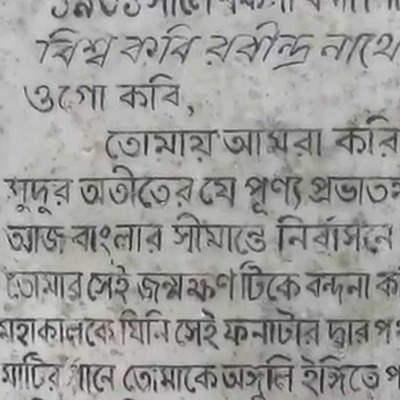 বিশ্ব কবি রবীন্দ্র নাথে
ওগো কবি,
তোমায় আমরা করি
সুদূর অতীতের যে পূণ্য প্রভাত
আজ বাংলার সীমান্তে নির্বাসনে
তোমার সেই জন্মক্ষণটিকে বন্দনা ক
মহাকালকে যিনি সেই ফনাটার দ্বার প
মাটির পানে তোমাকে অঙ্গুলি ইঙ্গিতে প